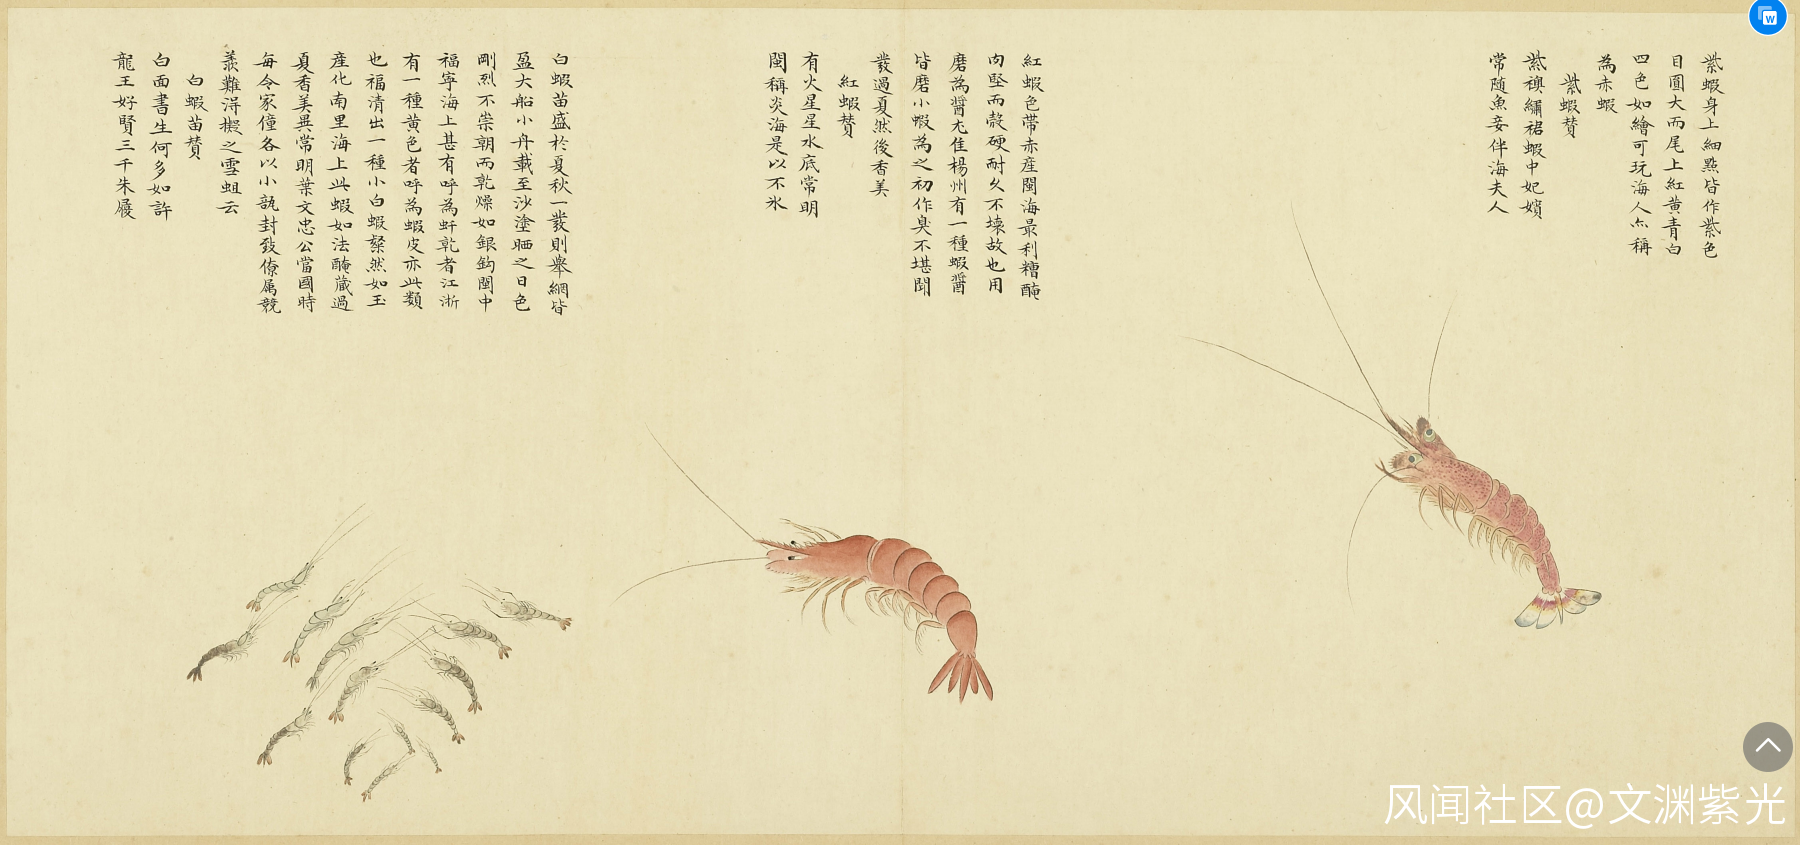 紫蝦身上細㸃皆作紫色
目圓大而尾上紅黄青白
四色如繪可玩海人亦稱
為赤蝦
紫蝦賛
紫襖繡裙蝦中妃嬪
常随魚妾伴海夫人
紅蝦色帯赤産閩海最利糟醃
肉堅而殻硬耐久不壊故也用
磨為醬尤佳楊州有一種蝦醬
皆磨小蝦為之初作臭不堪聞
發過夏然後香美
紅蝦賛
有火星星水底常明
閩稱炎海是以不氷
白蝦苗盛於夏秋一發則舉網皆
盈大船小舟載至沙塗晒之日色
剛烈不崇朝而乾燥如銀鈎閩中
福寜海上甚有呼為蚶乾者江浙
有一種黄色者呼為蝦皮亦此類
也福清出一種小白蝦粲然如玉
産化南里海上此蝦如法醃藏過
夏香美異常明葉文忠公當國時
每令家僮各以小瓿封致僚属競
羨難得擬之雪蛆云
白蝦苗賛
白面書生何多如許
龍王好賢三千朱履
W
风闻社区@文渊紫光